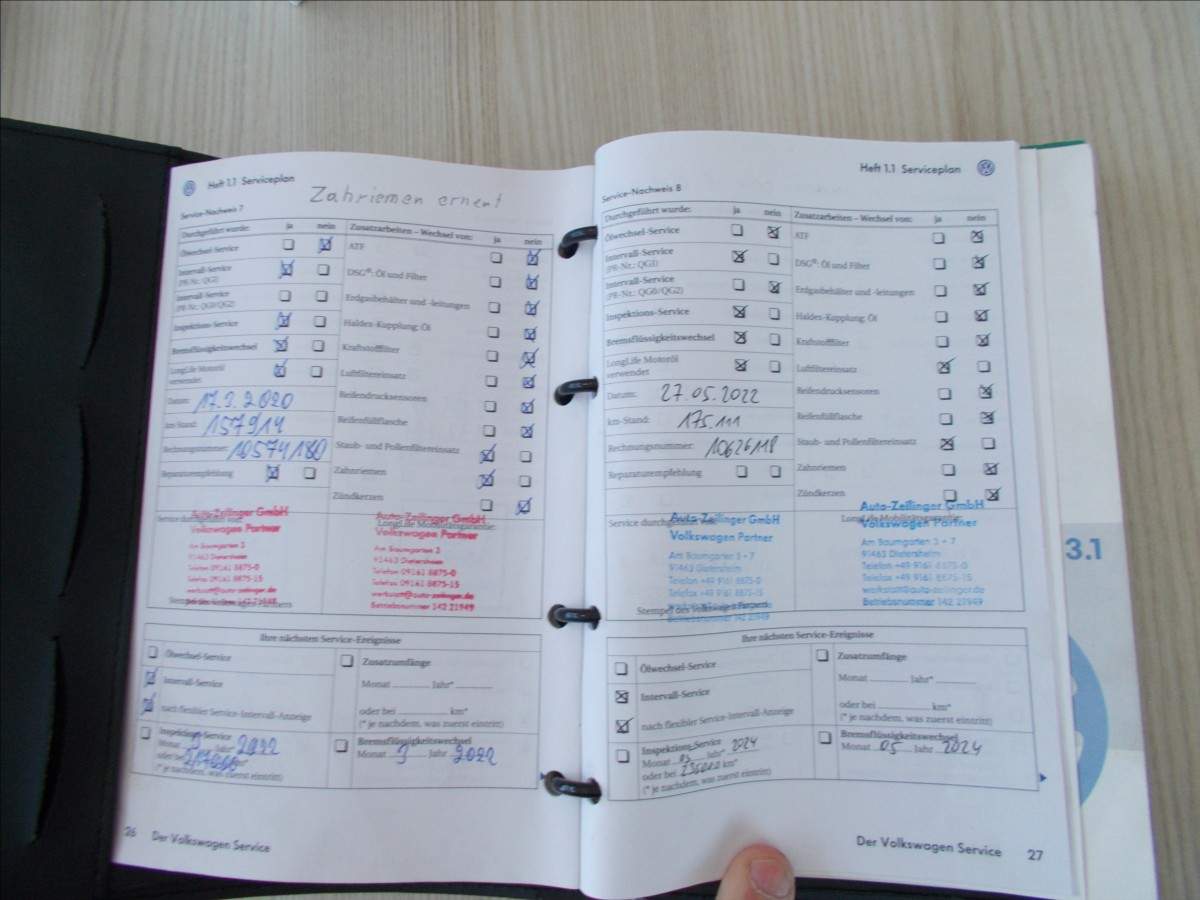 Heft 1.1 Serviceplan
Zahriemen ernent
Service-Nachweis 7
Durchgeführt wurde: ja nein
Ölwechsel-Service
Intervall-Service
(PR-Nr.: QG1)
Intervall-Service
(PR-Nr.: QG0/QG2)
Inspektions-Service
Bremsflüssigkeitswechsel
LongLife Motoröl
verwendet
Datum: 17.3.2020
km-Stand: 157914
Rechnungsnummer: 10574180
Reparaturempfehlung
Zusatzarbeiten – Wechsel von: ja nein
ATF
DSG®: Öl und Filter
Erdgasbehälter und -leitungen
Haldex-Kupplung: Öl
Kraftstofffilter
Luftfiltereinsatz
Reifendrucksensoren
Reifenfüllflasche
Staub- und Pollenfiltereinsatz
Zahnriemen
Zündkerzen
Service durchgeführt
Auto-Zeilinger GmbH
Volkswagen Partner
Am Baumgarten 3
91463 Dietersheim
Telefon 09161 8875-0
Telefax 09161 8875-15
werkstatt@auto-zeilinger.de
Stempel des Volkswagen Partners
LongLife Mobilitätsgarantie:
Auto-Zeilinger GmbH
Volkswagen Partner
Am Baumgarten 3
91463 Dietersheim
Telefon 09161 8875-0
Telefax 09161 8875-15
werkstatt@auto-zeilinger.de
Betriebsnummer 142 21949
Ihre nächsten Service-Ereignisse
Ölwechsel-Service
Intervall-Service
nach flexibler Service-Intervall-Anzeige
Inspektions-Service
Monat Jahr* 2022
oder bei km*
(* je nachdem, was zuerst eintritt)
Zusatzumfänge
Monat Jahr*
oder bei km*
(* je nachdem, was zuerst eintritt)
Bremsflüssigkeitswechsel
Monat 3 Jahr 2022
26 Der Volkswagen Service
Heft 1.1 Serviceplan
Service-Nachweis 8
Durchgeführt wurde: ja nein
Ölwechsel-Service
Intervall-Service
(PR-Nr.: QG1)
Intervall-Service
(PR-Nr.: QG0/QG2)
Inspektions-Service
Bremsflüssigkeitswechsel
LongLife Motoröl
verwendet
Datum: 27.05.2022
km-Stand: 175.111
Rechnungsnummer: 10626118
Reparaturempfehlung
Zusatzarbeiten – Wechsel von: ja nein
ATF
DSG®: Öl und Filter
Erdgasbehälter und -leitungen
Haldex-Kupplung: Öl
Kraftstofffilter
Luftfiltereinsatz
Reifendrucksensoren
Reifenfüllflasche
Staub- und Pollenfiltereinsatz
Zahnriemen
Zündkerzen
Service durchgeführt
Auto-Zeilinger GmbH
Volkswagen Partner
Am Baumgarten 3 + 7
91463 Dietersheim
Telefon +49 9161 8875-0
Telefax +49 9161 8875-15
Stempel des Volkswagen Partners
Betriebsnummer 142 21949
LongLife Mobilitätsgarantie:
Auto-Zeilinger GmbH
Volkswagen Partner
Am Baumgarten 3 + 7
91463 Dietersheim
Telefon +49 9161 8875-0
Telefax +49 9161 8875-15
werkstatt@auto-zeilinger.de
Betriebsnummer 142 21949
Ihre nächsten Service-Ereignisse
Ölwechsel-Service
Intervall-Service
nach flexibler Service-Intervall-Anzeige
Inspektions-Service
Monat 05 Jahr* 2024
oder bei km*
(* je nachdem, was zuerst eintritt)
Zusatzumfänge
Monat Jahr*
oder bei km*
(* je nachdem, was zuerst eintritt)
Bremsflüssigkeitswechsel
Monat 05 Jahr 2024
Der Volkswagen Service 27
3.1